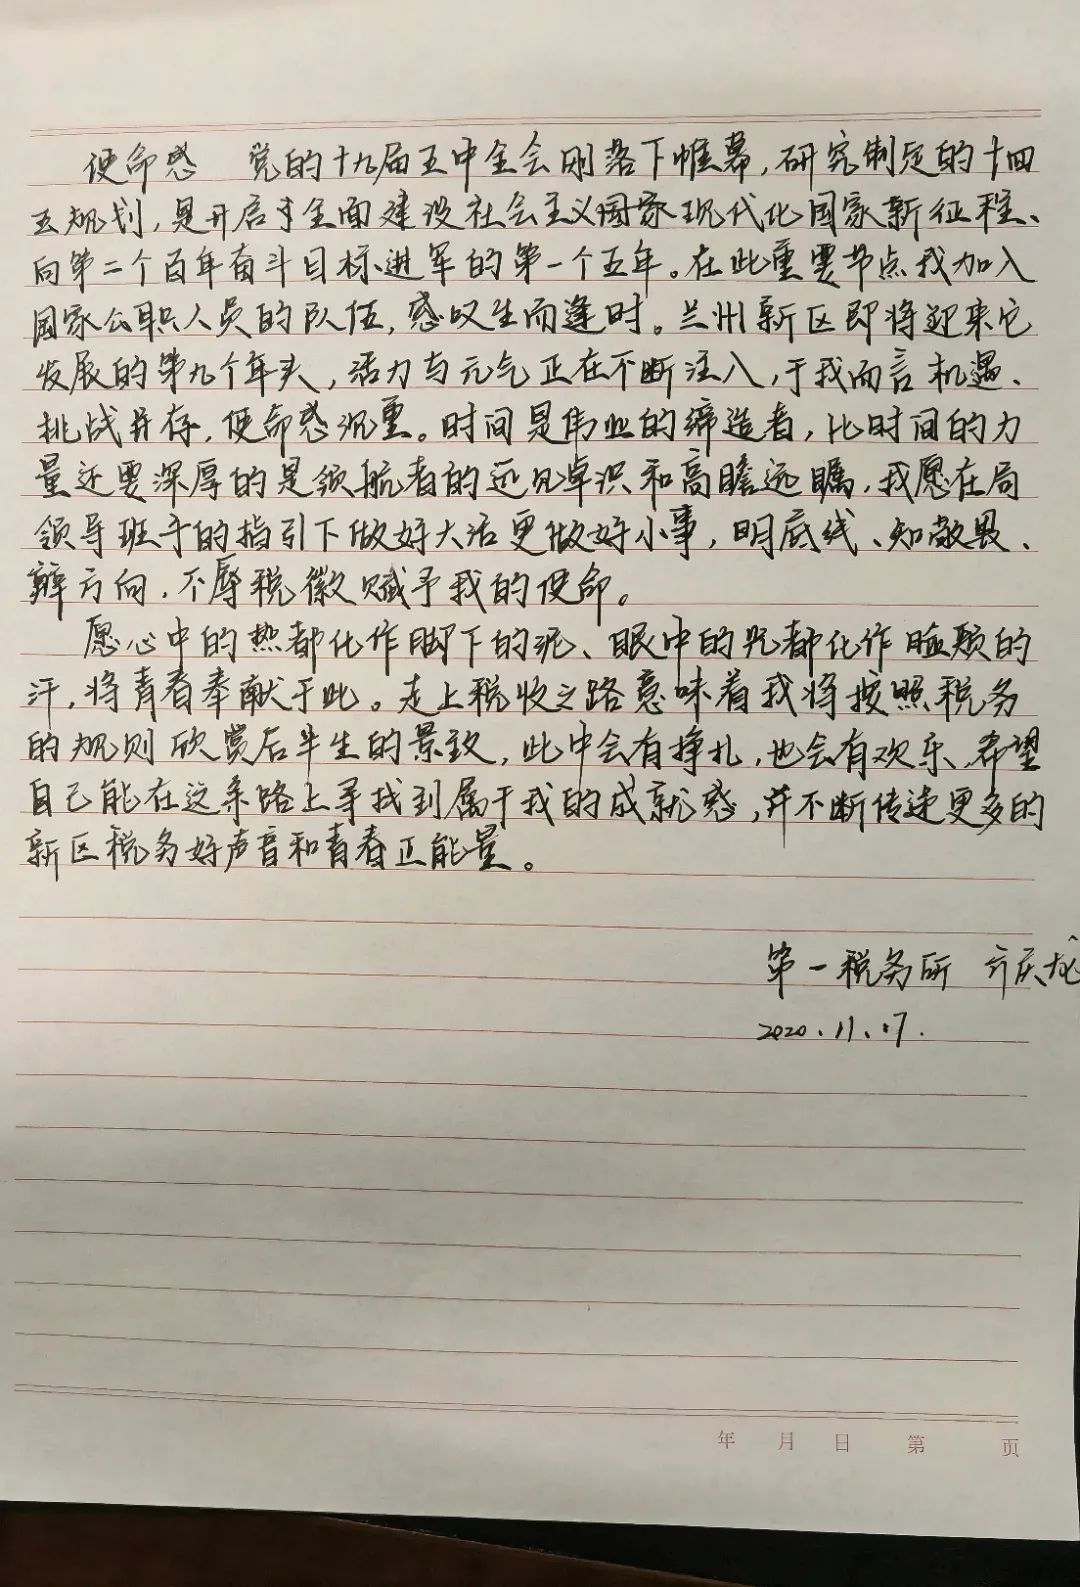 使命感 党的十九届五中全会刚落下帷幕,研究制定的十四
五规划,是开启了全面建设社会主义国家现代化国家新征程、
向第二个百年奋斗目标进军的第一个五年。在此重要节点我加入
国家公职人员的队伍,感叹生而逢时。兰州新区即将迎来它
发展的第九个年头,活力与元气正在不断注入,于我而言机遇、
挑战并存,使命感沉重。时间是伟业的缔造者,比时间的力
量还要深厚的是领航者的远见卓识和高瞻远瞩,我愿在局
领导班子的指引下做好大活更做好小事,明底线、知敬畏、
辨方向,不辱税徽赋予我的使命。
愿心中的热都化作脚下的泥、眼中的光都化作脸颊的
汗,将青春奉献于此。走上税收之路意味着我将按照税务
的规则欣赏后半生的景致,此中会有挣扎,也会有欢乐,希望
自己能在这条路上寻找到属于我的成就感,并不断传递更多的
新区税务好声音和青春正能量。
第一税务所 庆龙
2020.11.17.
年 月 日 第 页